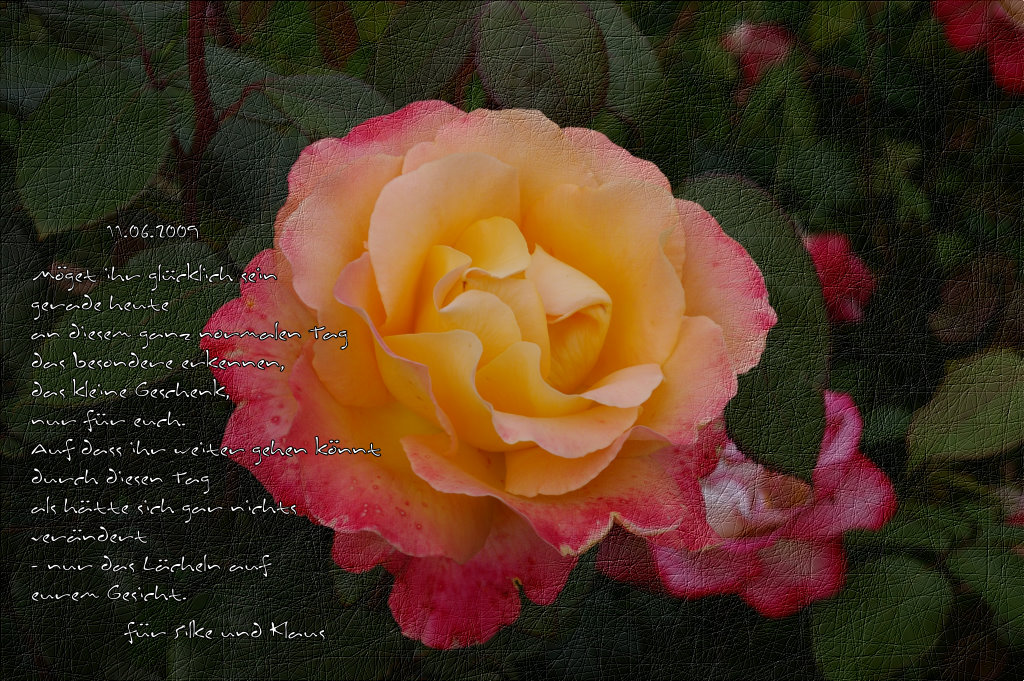 11.06.2009
Möget ihr glücklich sein
gerade heute
an diesem ganz normalen Tag
das besondere erkennen,
das kleine Geschenk,
nur für euch.
Auf dass ihr weiter gehen könnt
durch diesen Tag
als hätte sich gar nichts
verändert
- nur das Lächeln auf
eurem Gesicht.
für Silke und Klaus